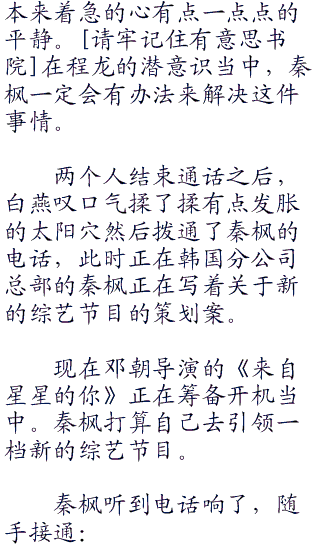 本来着急的心有点一点点的
平静。[请牢记住有意思书
院]在程龙的潜意识当中，秦
枫一定会有办法来解决这件
事情。
两个人结束通话之后，
白燕叹口气揉了揉有点发胀
的太阳穴然后拨通了秦枫的
电话，此时正在韩国分公司
总部的秦枫正在写着关于新
的综艺节目的策划案。
现在邓朝导演的《来自
星星的你》正在筹备开机当
中。秦枫打算自己去引领一
档新的综艺节目。
秦枫听到电话响了，随
手接通：